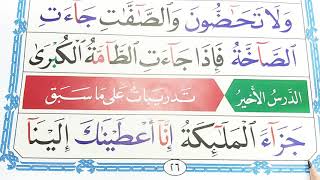 وَلَا تَحٰٓضُّونَ وَالصّٰٓفّٰتِ جَآءَت
الصَّآخَّةُ فَإِذَا جَآءَتِ الطَّآمَّةُ الْكُبْرَىٰ
الدَّرْسُ الْأَخِير تَدْرِيبَاتٌ عَلَىٰ مَا سَبَقَ
جَزَآءً الْمَلٰٓئِكَةُ إِنَّآ أَعْطَيْنٰكَ إِلَيْنَآ
٢٦